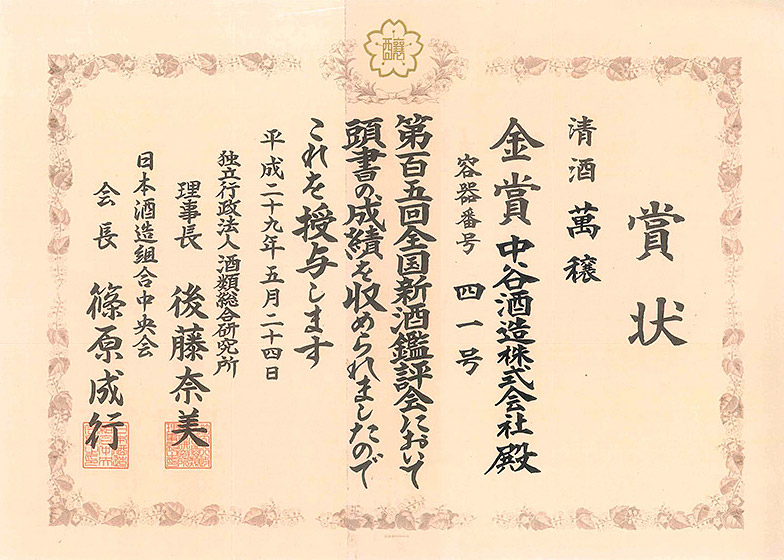 賞状
清酒 萬穣
金賞 中谷酒造株式会社殿
容器番号 四一号
第百五回全国新酒鑑評会において
頭書の成績を収められましたので
これを授与します
平成二十九年五月二十四日
独立行政法人 酒類総合研究所
理事長 後藤奈美
日本酒造組合中央会
会長 篠原成行